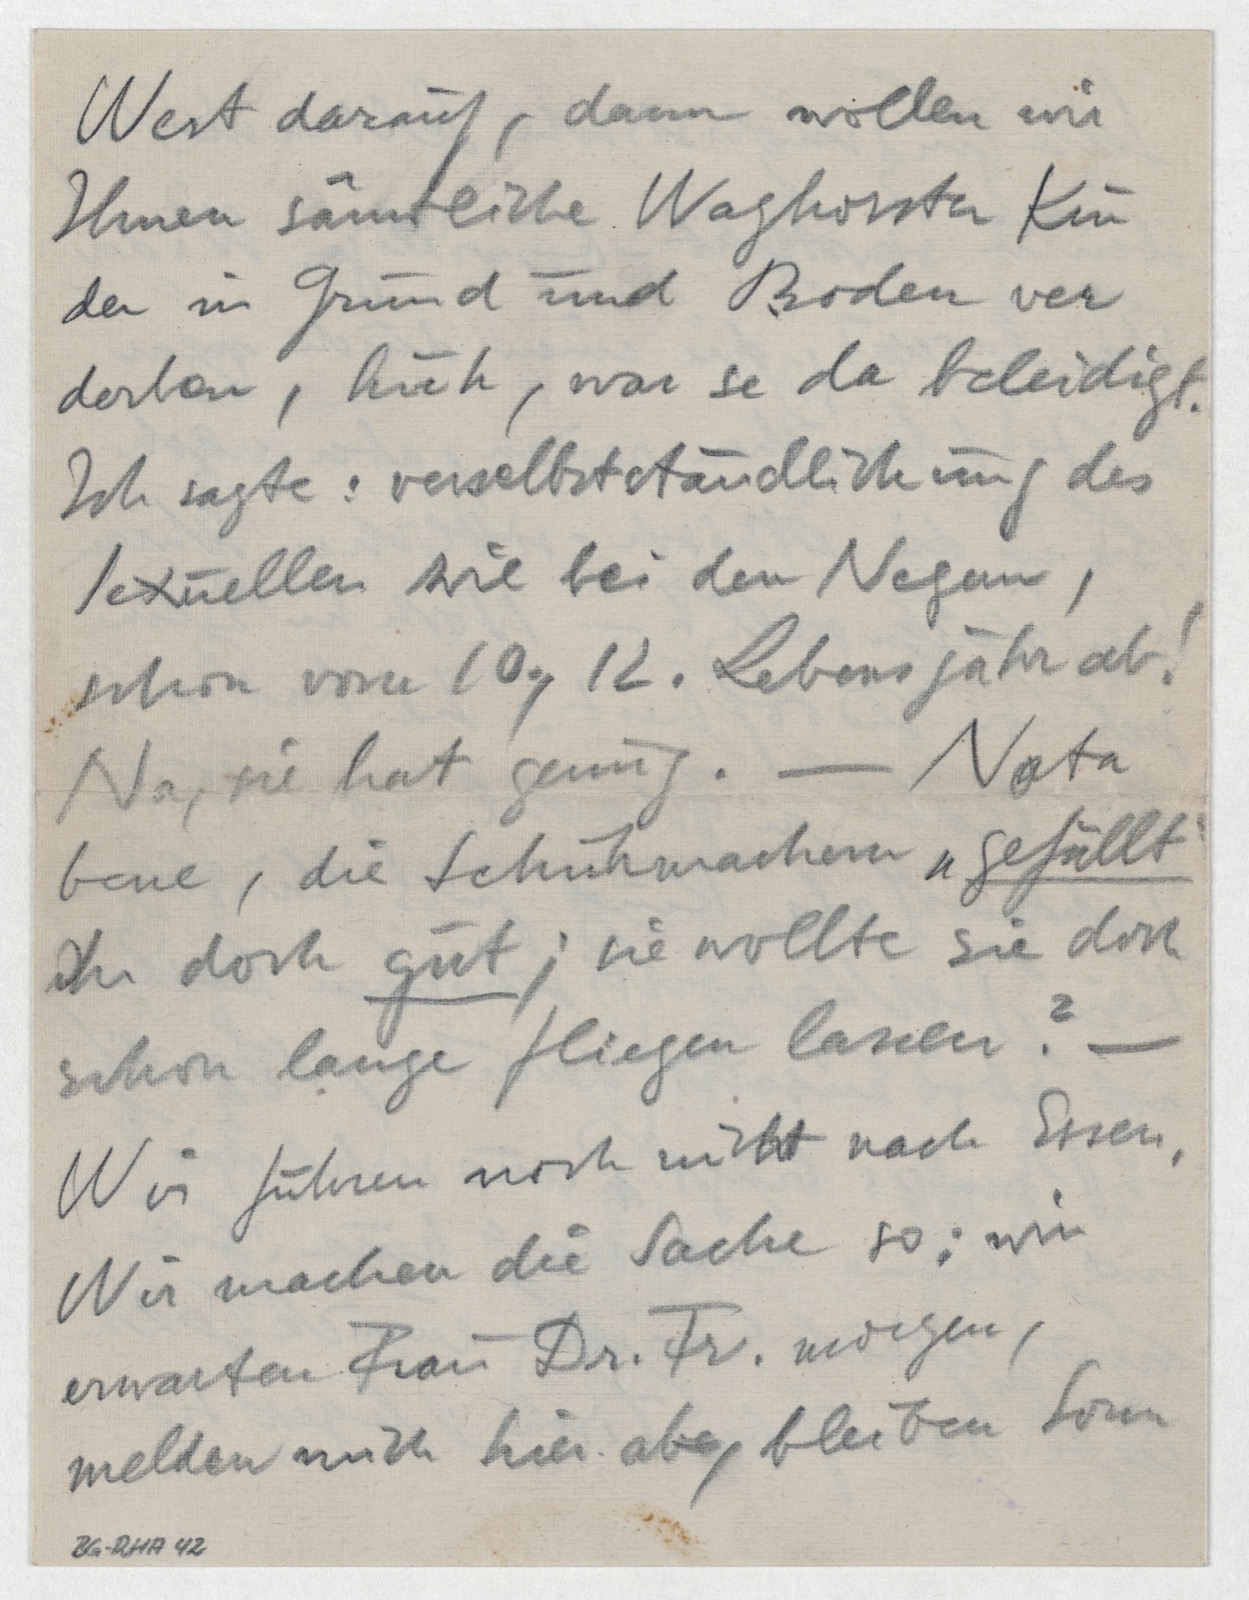 Wert darauf, dann wollen wir
Ihnen sämtliche Waghorster Kin
der in Grund und Boden ver
derben, huch, war se da beleidigt.
Ich sagte: verselbstständlichung des
sexuellen wie bei den Negern,
schon vom 10., 12. Lebensjahr ab!
Na, sie hat genug. — Nota
bene, die Schuhmachern „gefällt"
ihr doch gut; sie wollte sie doch
schon lange fliegen lassen? —
Wir führen noch nicht nach Essen,
Wir machen die Sache so: wir
erwarten Frau Dr. Fr. morgen,
melden mich hier ab, bleiben Sonn
BG-RHA 42